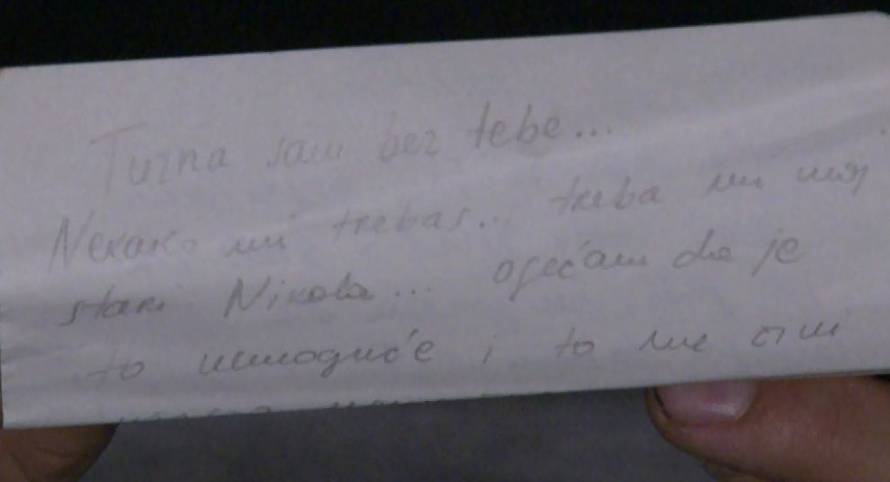 Tuzna sam bez tebe...
Nekako mi trebas... treba mi moj
stari Nikola... osećam da je
to nemoguće i to me čini